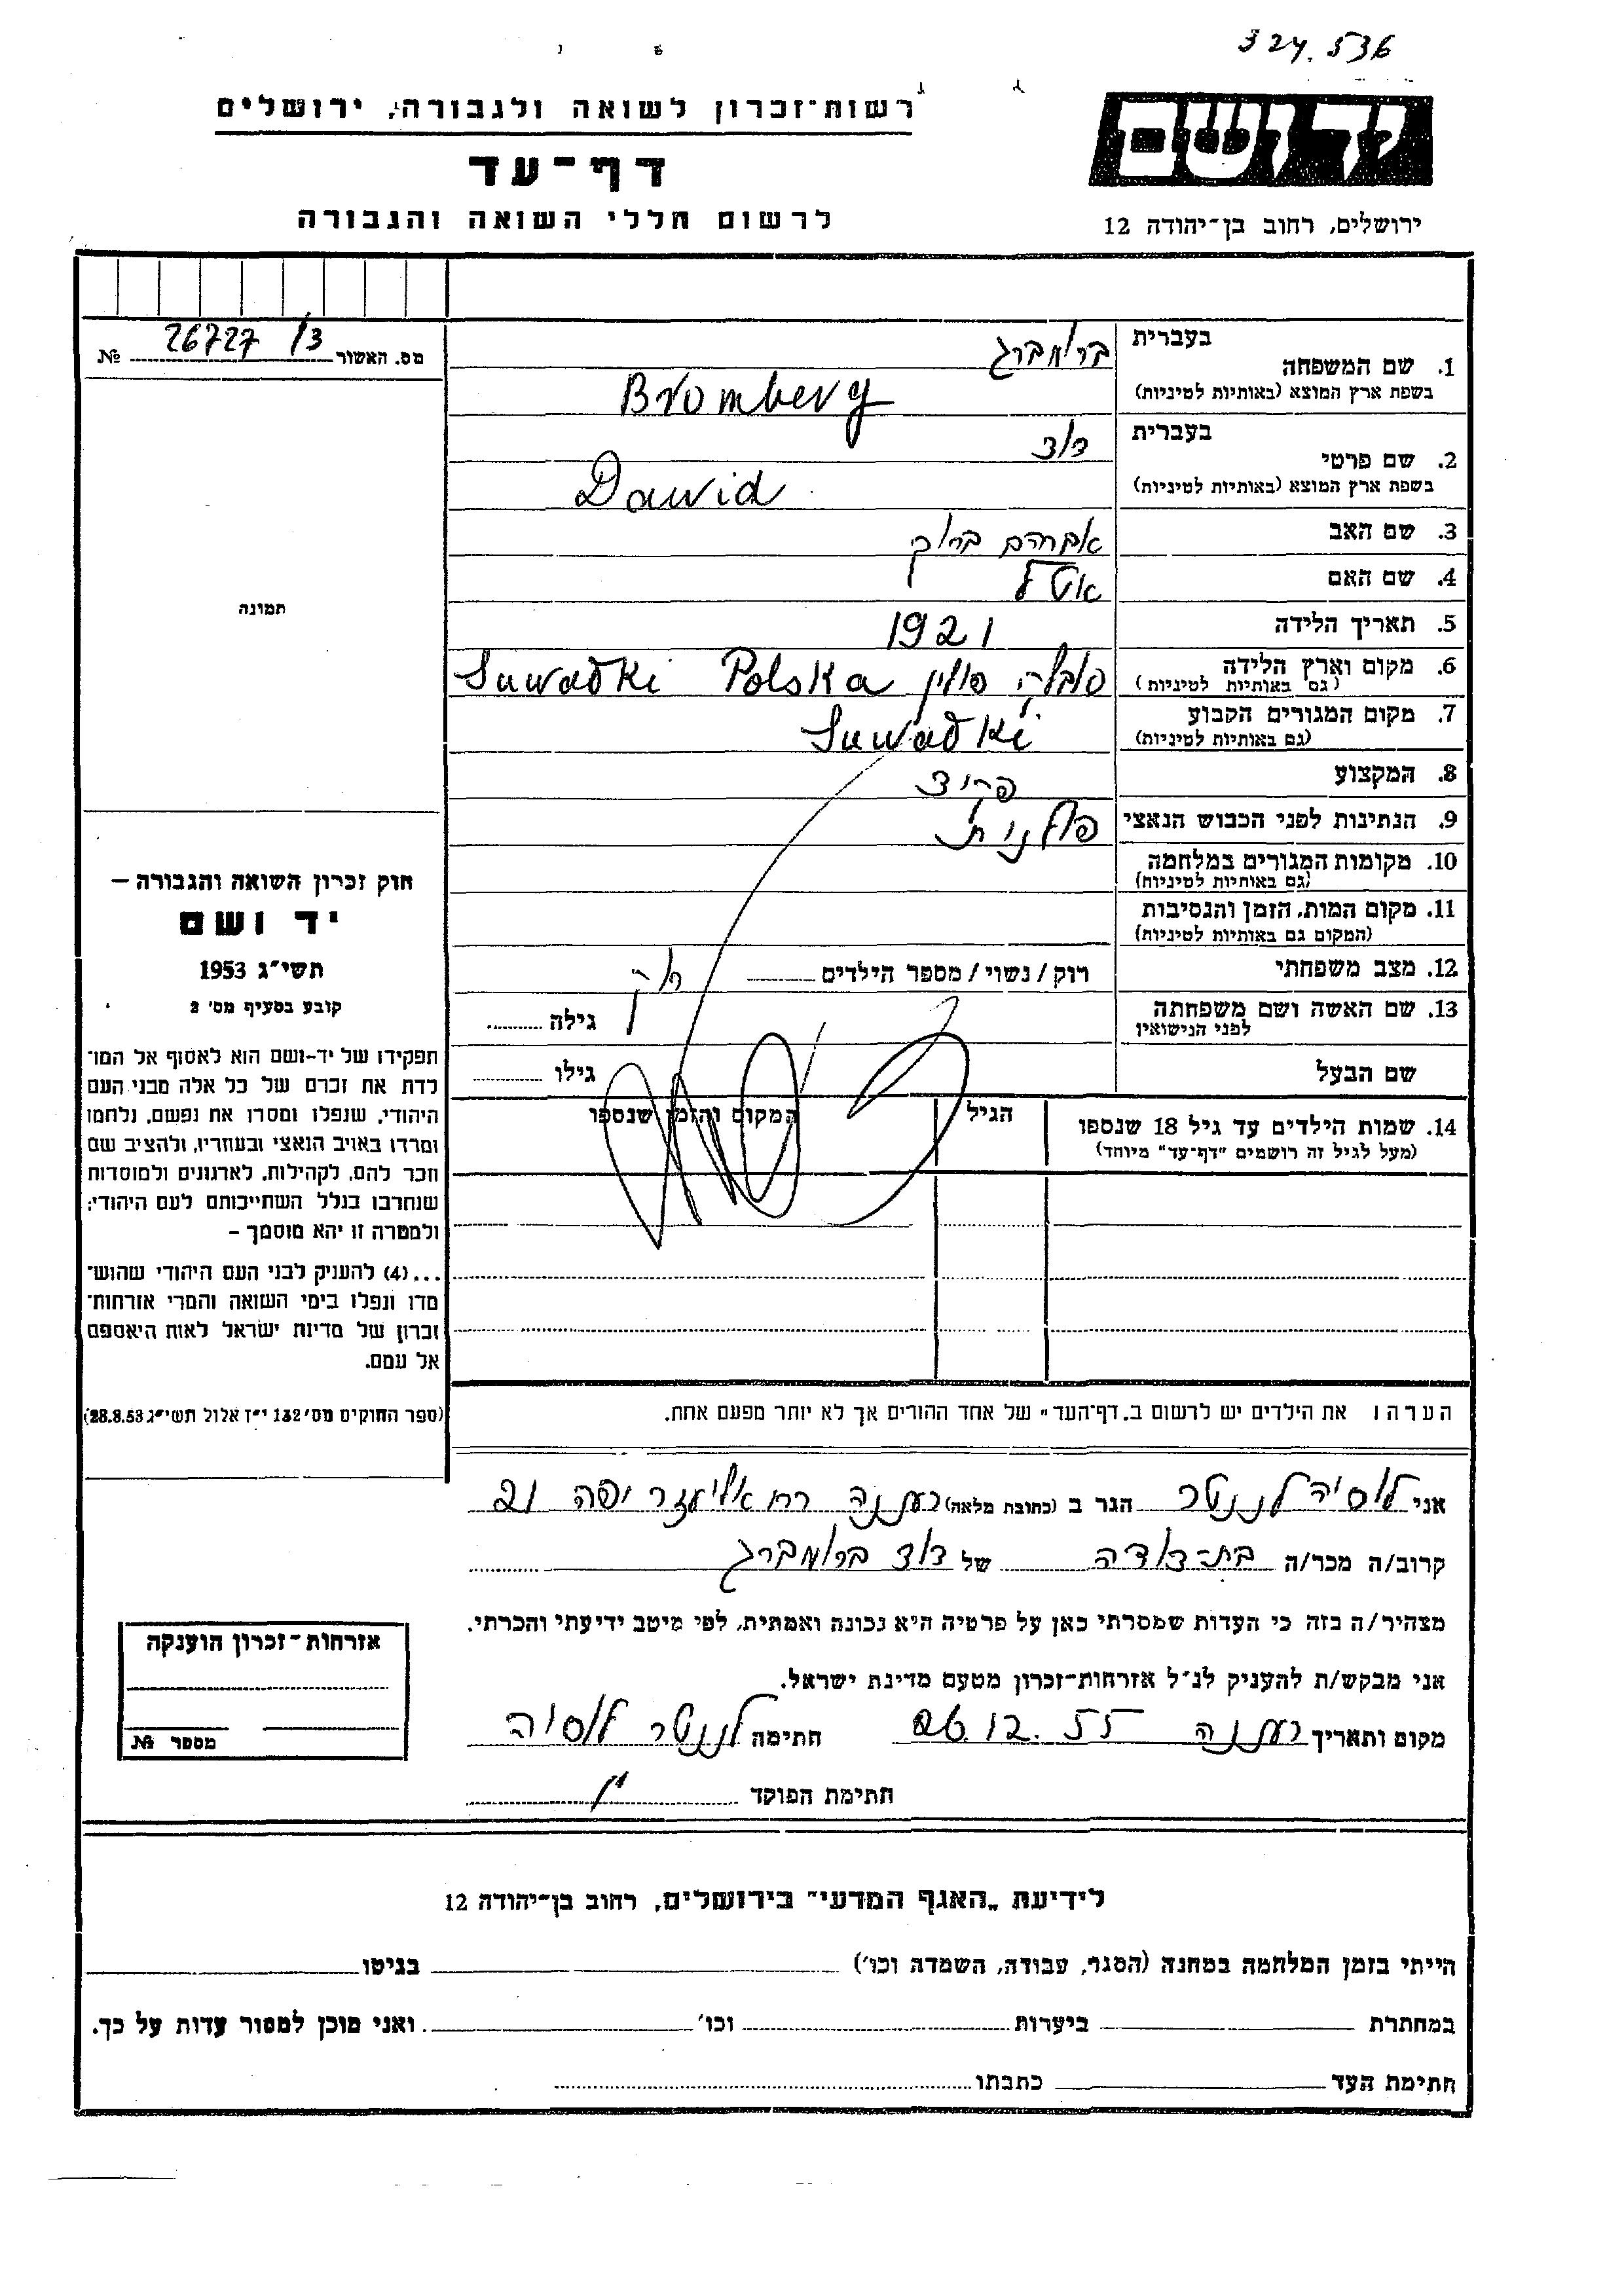 324.536
ידושם
רשות־זכרון לשואה ולגבורה, ירושלים
דף־עד
לרשום חללי השואה והגבורה
ירושלים, רחוב בן־יהודה 12
מס. האשור 26727 /3 №
בעברית ברומברג
1. שם המשפחה
בשפת ארץ המוצא (באותיות לטיניות) Bromberg
בעברית דוד
2. שם פרטי
בשפת ארץ המוצא (באותיות לטיניות) Dawid
3. שם האב אברהם ברוך
4. שם האם אטל
5. תאריך הלידה 1921
6. מקום וארץ הלידה
(גם באותיות לטיניות) סובלק פולין Suwałki Polska
7. מקום המגורים הקבוע
(גם באותיות לטיניות) Suwałki
8. המקצוע
9. הנתינות לפני הכבוש הנאצי פולנית
10. מקומות המגורים במלחמה
(גם באותיות לטיניות)
11. מקום המות, הזמן והנסיבות
(המקום גם באותיות לטיניות)
12. מצב משפחתי רוק / נשוי / מספר הילדים
13. שם האשה ושם משפחתה
לפני הנישואין גילה
שם הבעל גילו
14. שמות הילדים עד גיל 18 שנספו
(מעל לגיל זה רושמים "דף־עד" מיוחד)
הגיל
המקום והזמן שנספו
תמונה
חוק זכרון השואה והגבורה –
יד ושם
תשי"ג 1953
קובע בסעיף מס' 2
תפקידו של יד-ושם הוא לאסוף אל המו־
לדת את זכרם של כל אלה מבני העם
היהודי, שנפלו ומסרו את נפשם, נלחמו
ומרדו באויב הנאצי ובעוזריו, ולהציב שם
וזכר להם, לקהילות, לארגונים ולמוסדות
שנחרבו בגלל השתייכותם לעם היהודי;
ולמטרה זו יהא מוסמך –
...(4) להעניק לבני העם היהודי שהוש־
מדו ונפלו בימי השואה והמרי אזרחות־
זכרון של מדינת ישראל לאות היאספם
אל עמם.
(ספר החוקים מס' 132 י"ז אלול תשי"ג 28.8.53)
הערה: את הילדים יש לרשום ב„דף־העד" של אחד ההורים אך לא יותר מפעם אחת.
אני לוסיה לננטר הגר ב (כתובת מלאה) רעננה רח אליעזר יפה 21
קרוב/ה מכר/ה בת-דודה של דוד ברומברג
מצהיר/ה בזה כי העדות שמסרתי כאן על פרטיה היא נכונה ואמתית, לפי מיטב ידיעתי והכרתי.
אני מבקש/ת להעניק לנ"ל אזרחות־זכרון מטעם מדינת ישראל.
מקום ותאריך רעננה 26.12.55 חתימה לננטר לוסיה
חתימת הפוקד
אזרחות־זכרון הוענקה
מספר №
לידיעת „האגף המדעי" בירושלים, רחוב בן־יהודה 12
הייתי בזמן המלחמה במחנה (הסגר, עבודה, השמדה וכו') בגיטו
במחתרת ביערות וכו' ואני מוכן למסור עדות על כך.
חתימת העד כתבתו